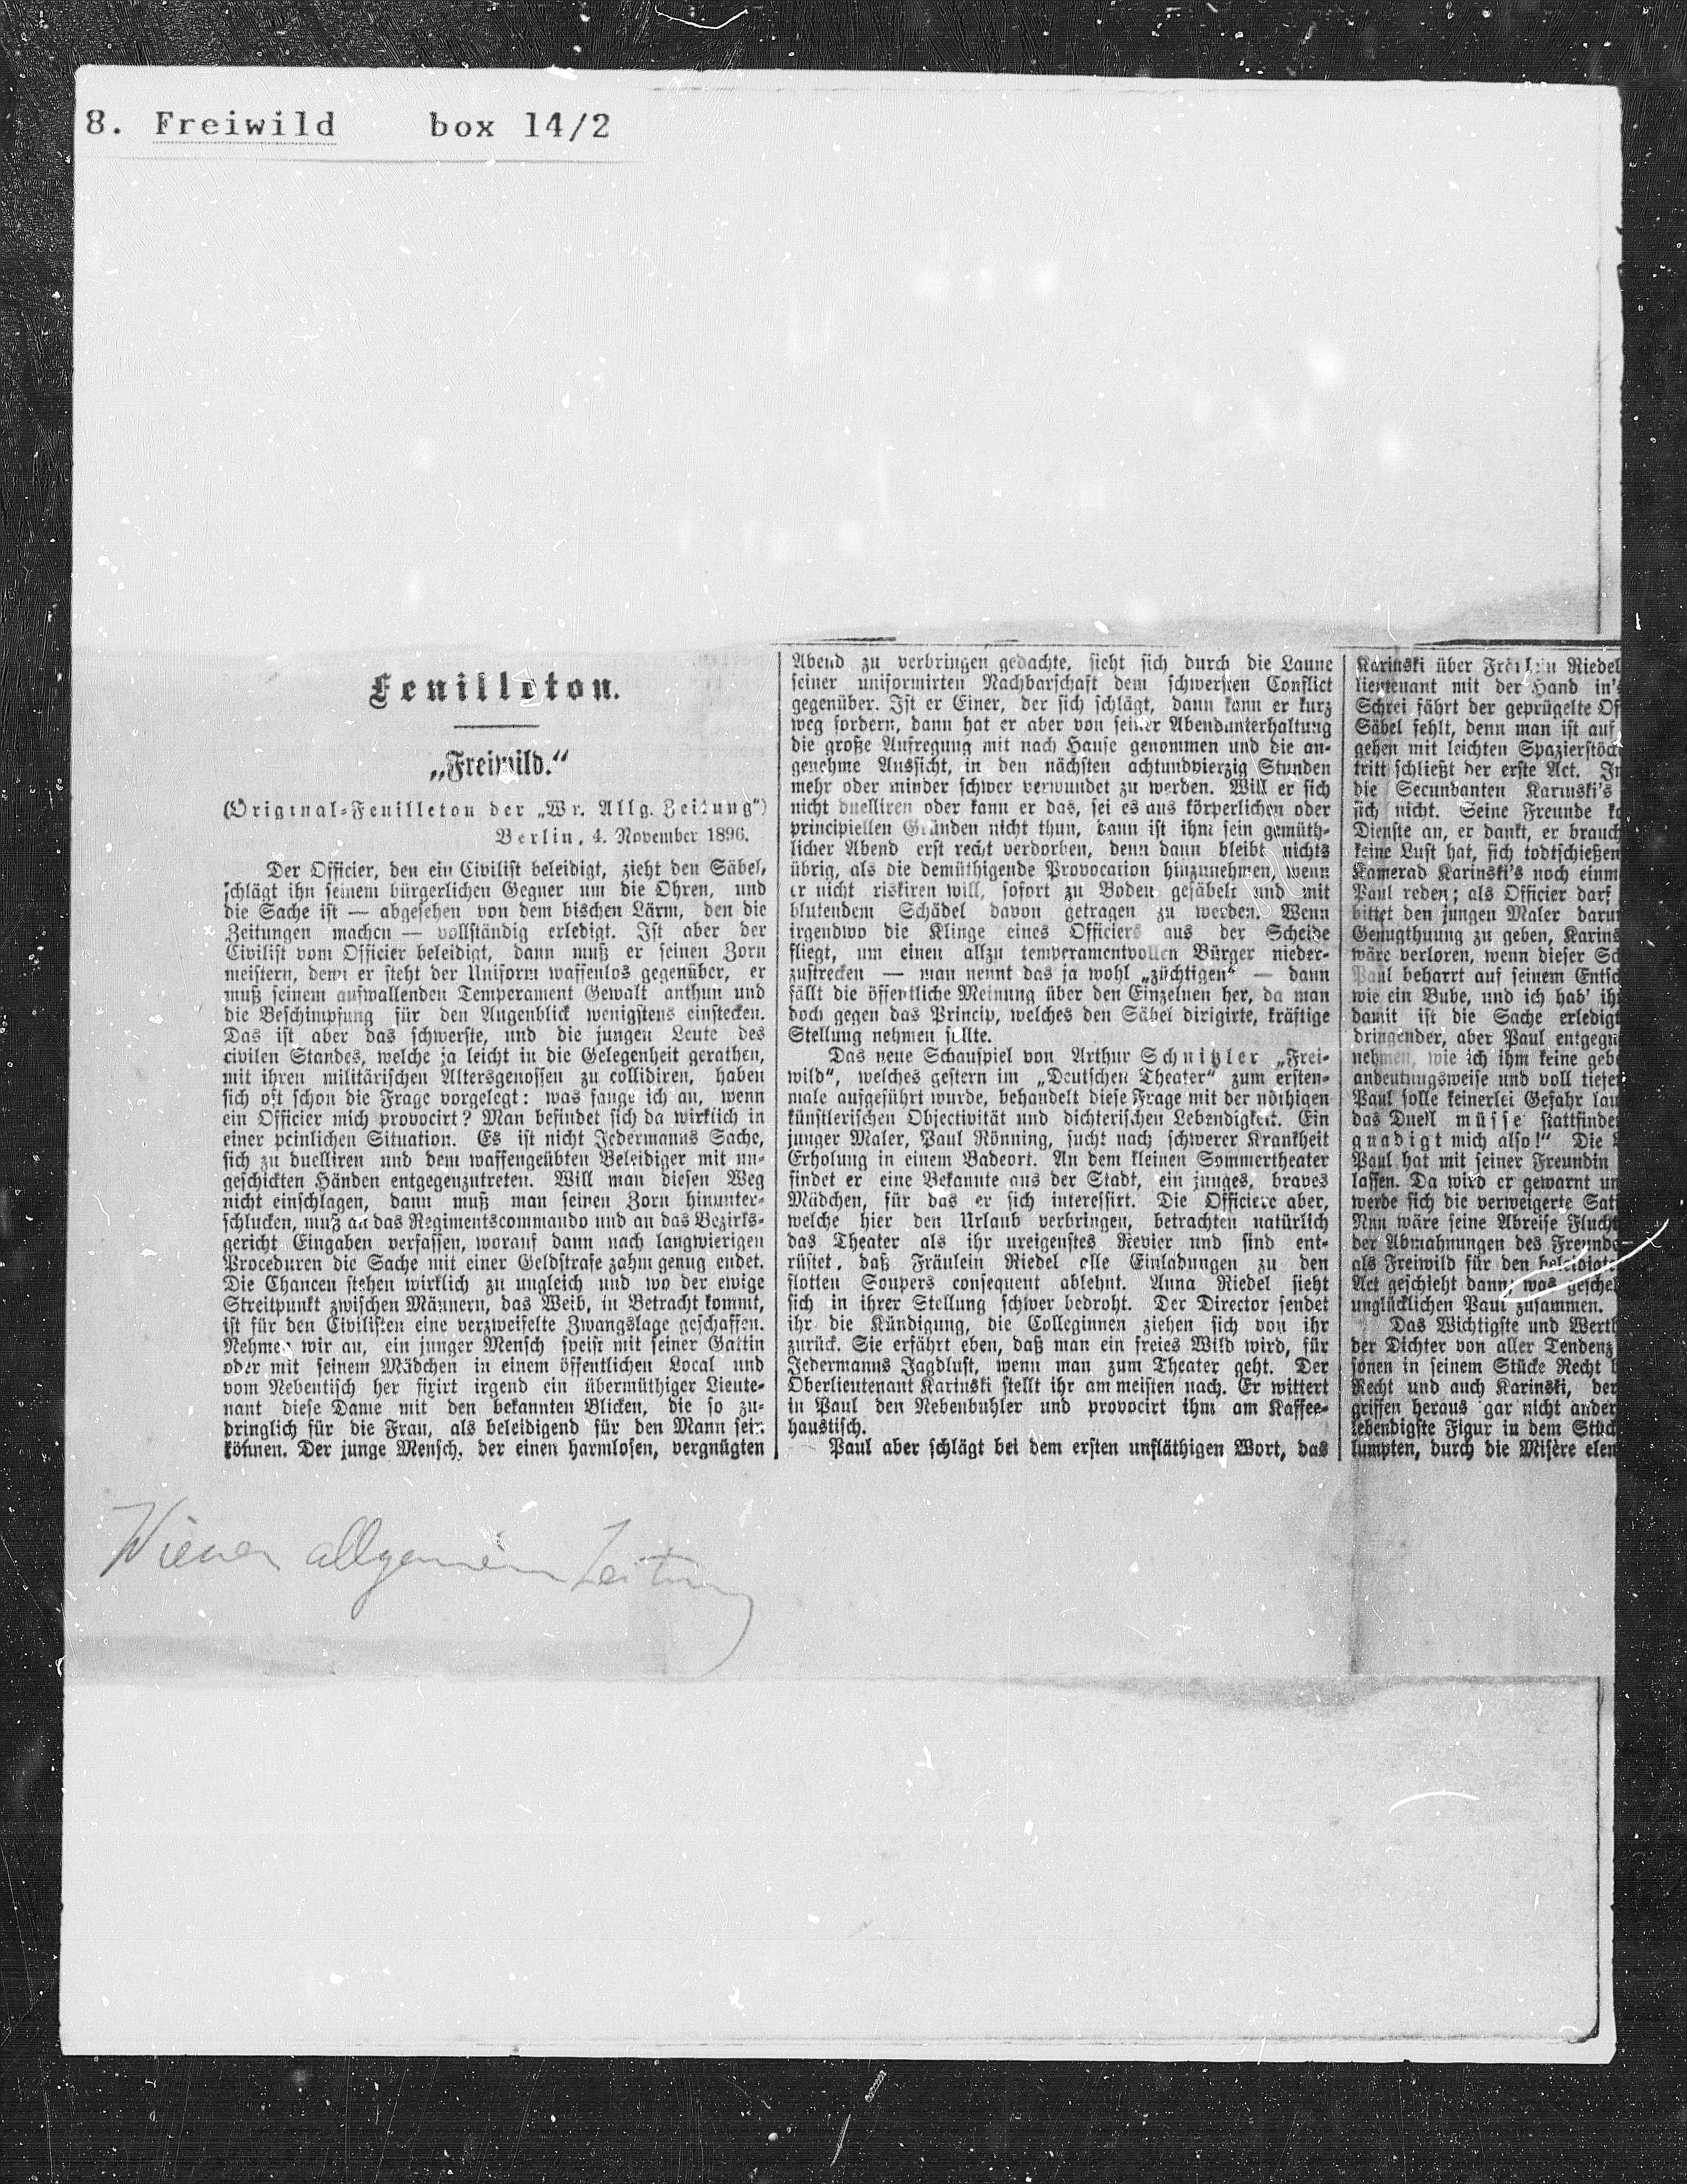 8. Freiwild box 14/2
Feuilleton.
„Freiwild."
(Original-Feuilleton der „Wr. Allg. Zeitung")
Berlin, 4. November 1896.
Der Officier, den ein Civilist beleidigt, zieht den Säbel,
schlägt ihn seinem bürgerlichen Gegner um die Ohren, und
die Sache ist — abgesehen von dem bischen Lärm, den die
Zeitungen machen — vollständig erledigt. Ist aber der
Civilist vom Officier beleidigt, dann muß er seinen Zorn
meistern, denn er steht der Uniform waffenlos gegenüber, er
muß seinem aufwallenden Temperament Gewalt anthun und
die Beschimpfung für den Augenblick wenigstens einstecken.
Das ist aber das schwerste, und die jungen Leute des
civilen Standes, welche ja leicht in die Gelegenheit gerathen,
mit ihren militärischen Altersgenossen zu collidiren, haben
sich oft schon die Frage vorgelegt: was fange ich an, wenn
ein Officier mich provocirt? Man befindet sich da wirklich in
einer peinlichen Situation. Es ist nicht Jedermanns Sache,
sich zu duelliren und dem waffengeübten Beleidiger mit un-
geschickten Händen entgegenzutreten. Will man diesen Weg
nicht einschlagen, dann muß man seinen Zorn hinunter-
schlucken, muß an das Regimentscommando und an das Bezirks-
gericht Eingaben verfassen, worauf dann nach langwierigen
Proceduren die Sache mit einer Geldstrafe zahm genug endet.
Die Chancen stehen wirklich zu ungleich und wo der ewige
Streitpunkt zwischen Männern, das Weib, in Betracht kommt,
ist für den Civilisten eine verzweifelte Zwangslage geschaffen.
Nehmen wir an, ein junger Mensch speist mit seiner Gattin
oder mit seinem Mädchen in einem öffentlichen Local und
vom Nebentisch her fixirt irgend ein übermüthiger Lieute-
nant diese Dame mit den bekannten Blicken, die so zu-
dringlich für die Frau, als beleidigend für den Mann sein
können. Der junge Mensch, der einen harmlosen, vergnügten
Abend zu verbringen gedachte, sieht sich durch die Laune
seiner uniformirten Nachbarschaft dem schwersten Conflict
gegenüber. Ist er Einer, der sich schlägt, dann kann er kurz
weg fordern, dann hat er aber von seiner Abendunterhaltung
die große Aufregung mit nach Hause genommen und die an-
genehme Aussicht, in den nächsten achtundvierzig Stunden
mehr oder minder schwer verwundet zu werden. Will er sich
nicht duelliren oder kann er das, sei es aus körperlichen oder
principiellen Gründen nicht thun, dann ist ihm sein gemüth-
licher Abend erst recht verdorben, denn dann bleibt nichts
übrig, als die demüthigende Provocation hinzunehmen, wenn
er nicht riskiren will, sofort zu Boden gesäbelt und mit
blutendem Schädel davon getragen zu werden. Wenn
irgendwo die Klinge eines Officiers aus der Scheide
fliegt, um einen allzu temperamentvollen Bürger nieder-
zustrecken — man nennt das ja wohl „züchtigen" — dann
fällt die öffentliche Meinung über den Einzelnen her, da man
doch gegen das Princip, welches den Säbel dirigirte, kräftige
Stellung nehmen sollte.
Das neue Schauspiel von Arthur Schnitzler „Frei-
wild", welches gestern im „Deutschen Theater" zum ersten-
male aufgeführt wurde, behandelt diese Frage mit der nöthigen
künstlerischen Objectivität und dichterischen Lebendigkeit. Ein
junger Maler, Paul Rönning, sucht nach schwerer Krankheit
Erholung in einem Badeort. An dem kleinen Sommertheater
findet er eine Bekannte aus der Stadt, ein junges, braves
Mädchen, für das er sich interessirt. Die Officiere aber,
welche hier den Urlaub verbringen, betrachten natürlich
das Theater als ihr ureigenstes Revier und sind ent-
rüstet, daß Fräulein Riedel alle Einladungen zu den
flotten Soupers consequent ablehnt. Anna Riedel sieht
sich in ihrer Stellung schwer bedroht. Der Director sendet
ihr die Kündigung, die Colleginnen ziehen sich von ihr
zurück. Sie erfährt eben, daß man ein freies Wild wird, für
Jedermanns Jagdlust, wenn man zum Theater geht. Der
Oberlieutenant Karinski stellt ihr am meisten nach. Er wittert
in Paul den Nebenbuhler und provocirt ihm am Kaffee-
haustisch.
Paul aber schlägt bei dem ersten unfläthigen Wort, das
Karinski über Fräulein Riedel
lieutenant mit der Hand in's
Schrei fährt der geprügelte Of
Säbel fehlt, denn man ist auf
gehen mit leichten Spazierstöck
tritt schließt der erste Act. In
die Secundanten Karinski's
sich nicht. Seine Freunde
Dienste an, er dankt, er brauch
keine Lust hat, sich todtschießen
Kamerad Karinski's noch einm
Paul reden; als Officier darf
bittet den jungen Maler darum
Genugthuung zu geben, Karins
wäre verloren, wenn dieser Sc
Paul beharrt auf seinem Entsc
wie ein Bube, und ich hab' ih
damit ist die Sache erledigt
dringender, aber Paul entgegn
nehmen, wie ich ihm keine gebe
andeutungsweise und voll tiefe
Paul solle keinerlei Gefahr lau
das Duell müsse stattfinde
gnadigt mich also!" Die
Paul hat mit seiner Freundin
lassen. Da wird er gewarnt un
werde sich die verweigerte Sat
Nun wäre seine Abreise Flucht
der Abmahnungen des Freunde
als Freiwild für den beleidigte
Act geschieht dann, was gescheh
unglücklichen Paul zusammen.
Das Wichtigste und Werth
der Dichter von aller Tendenz
sonen in seinem Stücke Recht
Recht und auch Karinski, der
griffen heraus gar nicht ander
lebendigste Figur in dem Stück
lumpten, durch die Misère elen
Wiener allgemein Zeitung